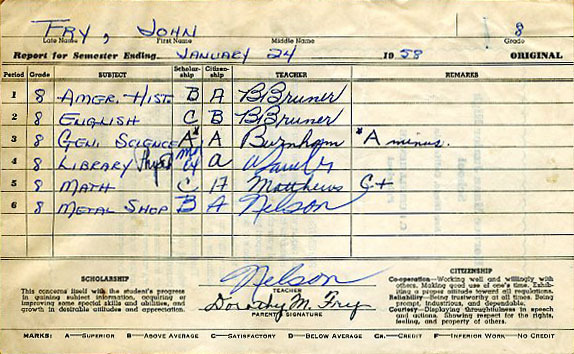 FRY, JOHN 8
Late Name First Name Middle Name Grade
Report for Semester Ending. JANUARY 24 1958 ORIGINAL
Period Grade SUBJECT Scholar-ship Citizen-ship TEACHER REMARKS
1 8 AMER. HIST. B A B Bruner
2 8 ENGLISH C B B Bruner
3 8 GEN. SCIENCE A* A Burnham *A minus.
4 8 LIBRARY Phys Ed a
5 8 MATH C A Matthews C+
6 8 METAL SHOP B A Nelson
SCHOLARSHIP
This concerns itself with the student's progress
in gaining subject information, acquiring or
improving some special skills and abilities, and
growth in desirable attitudes and appreciation.
Nelson
TEACHER
Dorothy M. Fry
PARENT'S SIGNATURE
CITIZENSHIP
Co-operation—Working well and willingly with
others. Making good use of one's time. Exhibit-
ing a proper attitude toward all regulations.
Reliability—Being trustworthy at all times. Being
prompt, industrious, and dependable.
Courtesy—Displaying thoughtfulness in speech
and actions. Showing respect for the rights,
feeling, and property of others.
MARKS: A—SUPERIOR B—ABOVE AVERAGE C—SATISFACTORY D—BELOW AVERAGE CR.—CREDIT F—INFERIOR WORK NO CREDIT